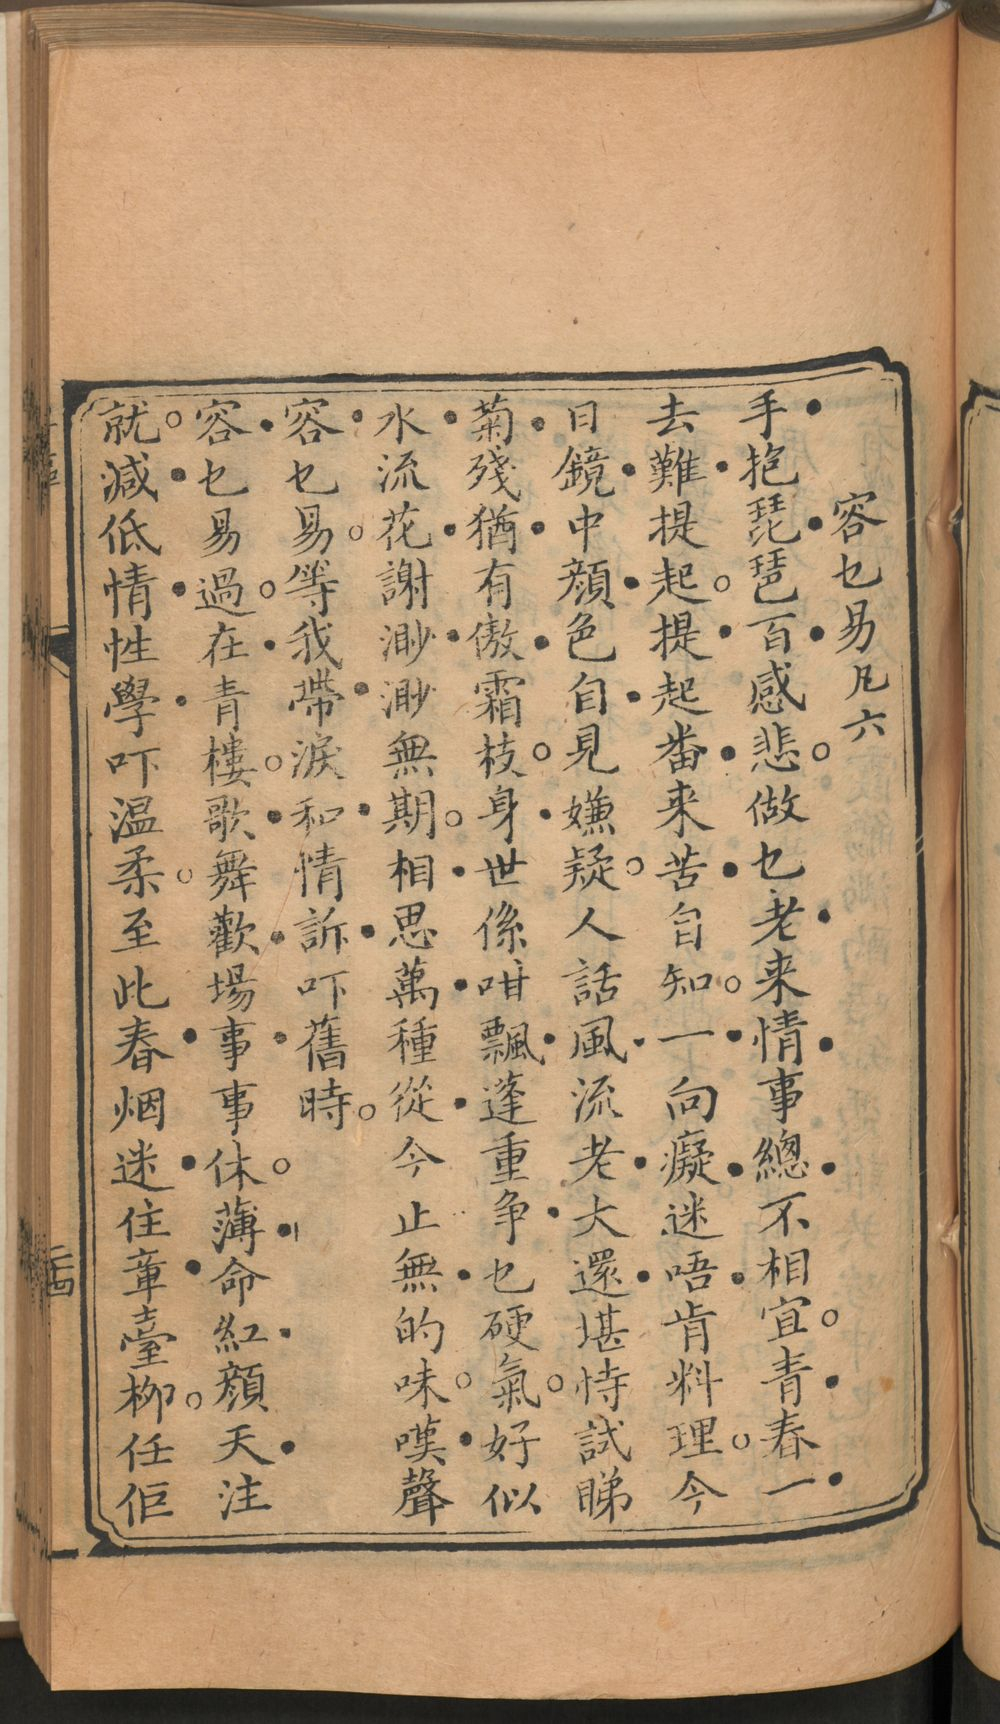 容乜易凡六
手抱琵琶百感悲○做乜老来情事總不相宜○青春一
去難提起○提起番来苦自知○一向癡迷唔肯料理○今
日鏡中顔色自見嫌疑○人話風流老大還堪恃試睇
菊殘猶有傲霜枝○身世係咁飄蓬重争乜硬氣○好似
水流花謝渺渺無期○相思萬種從今止無的味○嘆聲
容乜易○等我帶淚和情訴吓舊時○
容乜易過○在青樓○歌舞歡場事事休○薄命紅顔天注
就○減低情性學吓温柔○至此春烟迷住章臺柳○任佢
二十四